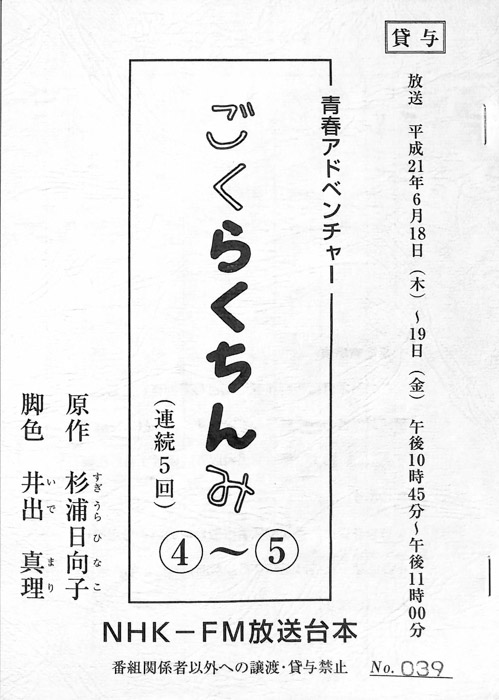 貸与
放送 平成21年6月18日(木)~19日(金) 午後10時45分~午後11時00分
青春アドベンチャー
ごくらくちんみ
(連続5回)
④~⑤
原作 杉浦日向子
すぎうらひなこ
脚色 井出 真理
いでまり
NHK-FM放送台本
番組関係者以外への譲渡・貸与禁止 No. 039